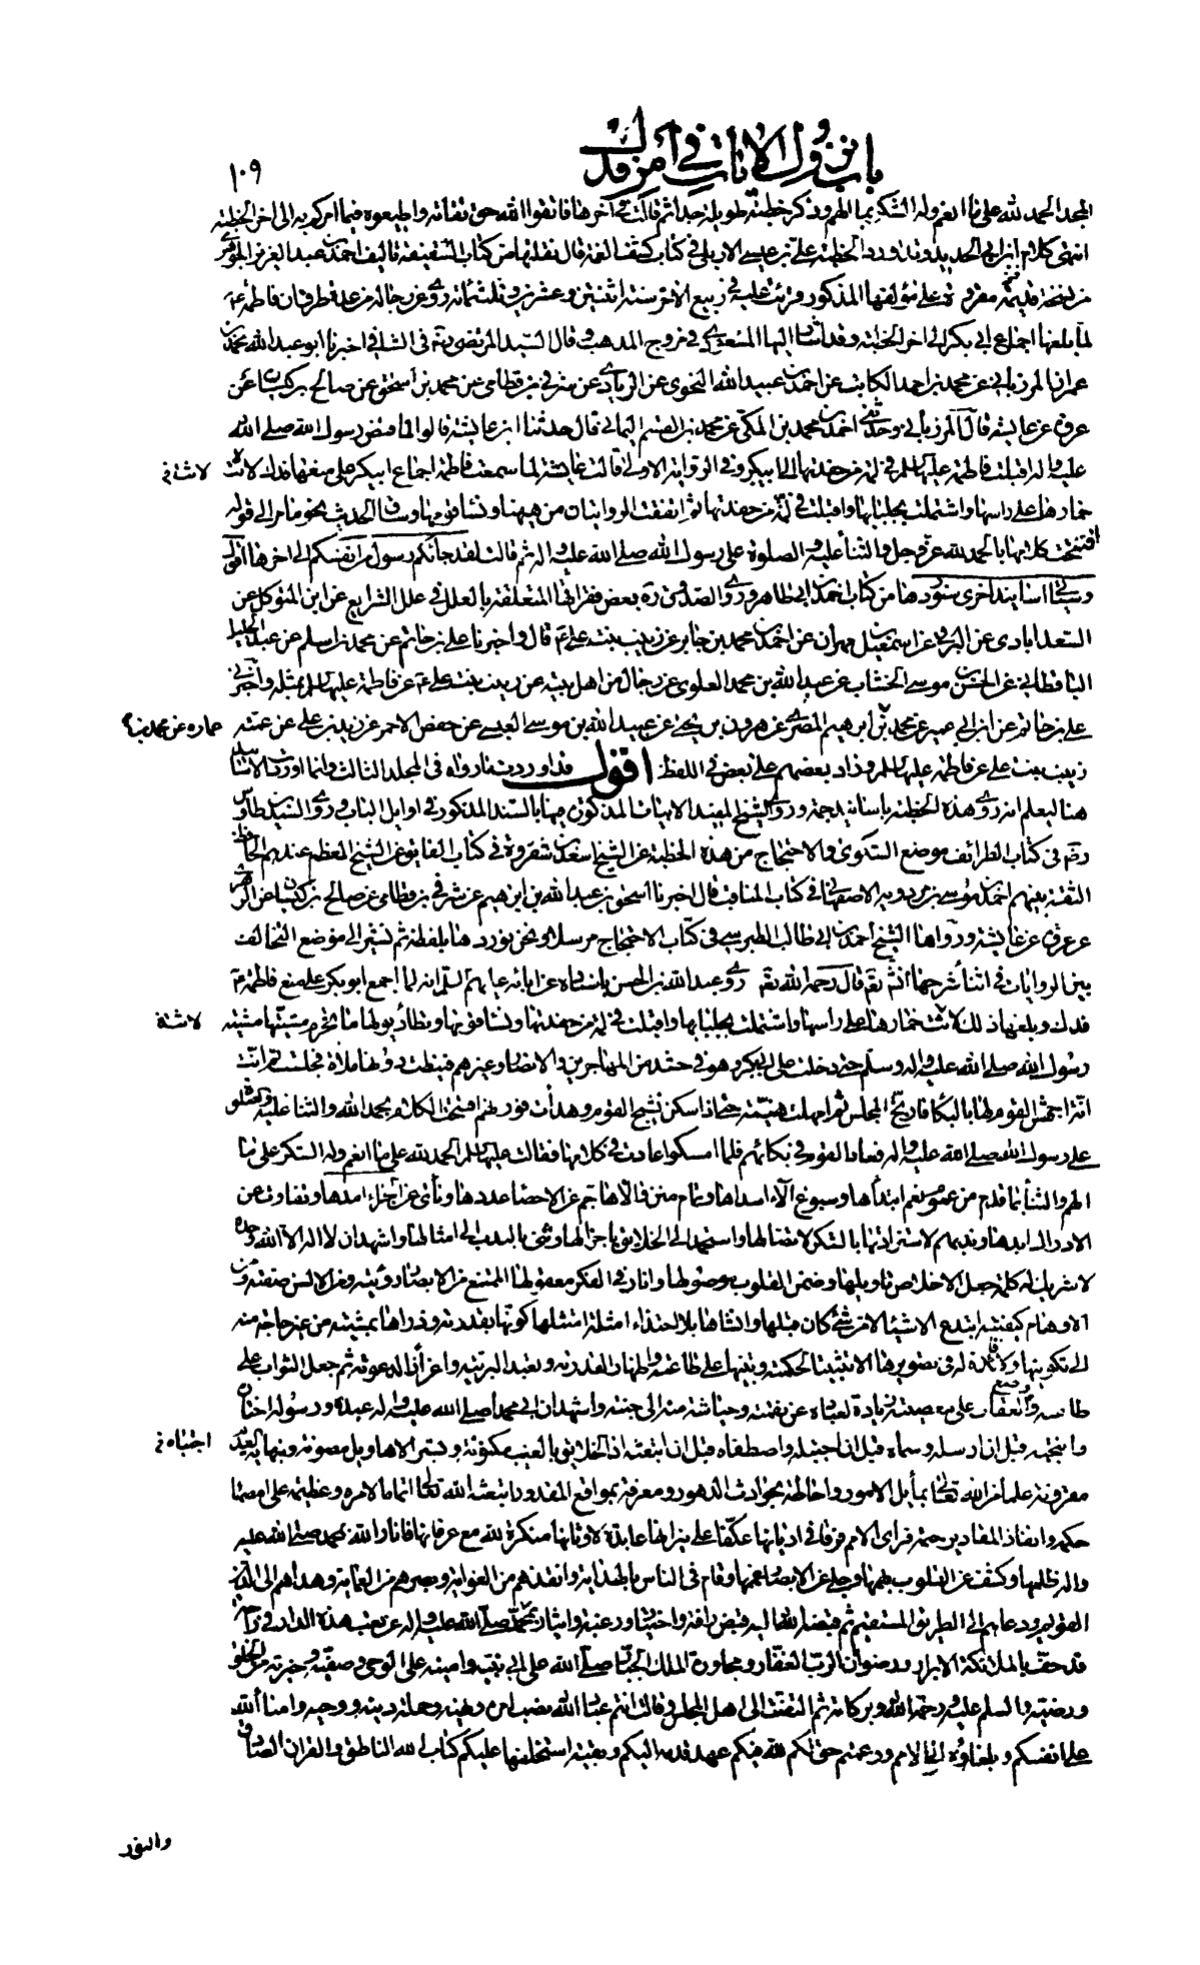 باب نزول الآيات في أمر فدك
١٠٩
المجد الحمد لله على ما انعم وله الشكر بما الهم وذكر خطبة طويلة جدا ثم قالت في آخرها فاتقوا الله حق تقاته واطيعوه فيما امركم به الى اخر الخطبة
انتهى كلام ابن ابي الحديد وقد اورد الخطبة علي بن عيسى الاربلي في كتاب كشف الغمة قال نقلتها من كتاب السقيفة تاليف احمد بن عبد العزيز الجوهري
من نسخة قديمة مقروءة على مؤلفها المذكور وقرئت عليه في ربيع الاخر سنة اثنتين وعشرين وثلثمائة روى عن رجاله من عدة طرق ان فاطمة ع
لما بلغها اجماع ابي بكر الى اخر الخطبة وقد اشار اليها المسعودي في مروج المذهب وقال السيد المرتضى ره في الشافي اخبرنا ابو عبد الله محمد بن
عمران المرزباني عن محمد بن احمد الكاتب عن احمد بن عبيد الله النحوي عن الزيادي عن شرقي بن قطامي عن محمد بن اسحق عن صالح بن كيسان عن
عروة عن عايشة قال المرزباني وحدثني احمد بن محمد بن المكي عن محمد بن القسم اليماني قال حدثنا ابن عايشة قالوا لما قبض رسول الله صلى الله
عليه واله اقبلت فاطمة عليها السلم في لمة من حفدتها الى ابي بكر وفي الرواية الاولى قالت عايشة لما سمعت فاطمة اجماع ابي بكر على منعها فدك لاثت
خمارها على راسها واشتملت بجلبابها واقبلت في لمة من حفدتها ثم اتفقت الروايتان من ههنا ونساء قومها وساق الحديث نحو ما مر الى قوله
افتتحت كلامها بالحمد لله عز وجل والثناء عليه والصلوة على رسول الله صلى الله عليه واله ثم قالت لقد جائكم رسول من انفسكم الى اخرها اقول
وسيأتي اسانيد اخرى سنوردها من كتاب احمد بن ابي طاهر وروى الصدوق ره بعض فقراتها المتعلقة بالعلل في علل الشرايع عن ابن المتوكل عن
السعدابادي عن البرقي عن اسمعيل بن مهران عن احمد بن محمد بن جابر عن زينب بنت علي ع قال واخبرنا علي بن حاتم عن محمد بن اسلم عن عبد الجليل
الباقطاني عن الحسن بن موسى الخشاب عن عبد الله بن محمد العلوي عن رجال من اهل بيته عن زينب بنت علي ع عن فاطمة عليها السلم بمثله واخبرني
علي بن حاتم عن ابن ابي عمير عن محمد بن ابرهيم المصري عن هرون بن يحيى عن عبيد الله بن موسى العبسي عن حفص الاحمر عن زيد بن علي عن عمته
زينب بنت علي عن فاطمة عليها السلم وزاد بعضهم على بعض في اللفظ اقول قد اوردت ما رواه في المجلد الثالث وانما اوردت الاسانيد
هنا ليعلم انه روى هذه الخطبة باسانيد جمة وروى الشيخ المفيد الابيات المذكورة فيها بالسند المذكور في اوايل الباب وروى السيد بن طاوس
رضي في كتاب الطرائف موضع الشكوى والاحتجاج من هذه الخطبة عن الشيخ اسعد بن شقروة في كتاب الفايق عن الشيخ المعظم عندهم الحافظ
الثقة بينهم احمد بن موسى بن مردويه الاصفهاني في كتاب المناقب قال اخبرنا اسحق بن عبد الله بن ابرهيم عن شرقي بن قطامي عن صالح بن كيسان عن الزهري
عن عروة عن عايشة ورواها الشيخ احمد بن ابي طالب الطبرسي في كتاب الاحتجاج مرسلا ونحن نوردها بلفظه ثم نشير الى موضع التخالف
بين الروايات في اثناء شرحها انشاء الله تعالى قال رحمه الله تعالى روى عبد الله بن الحسن باسناده عن ابائه عليهم السلم انه لما اجمع ابو بكر على منع فاطمة ع
فدك وبلغها ذلك لاثت خمارها على راسها واشتملت بجلبابها واقبلت في لمة من حفدتها ونساء قومها تطأ ذيولها ما تخرم مشيتها مشية
رسول الله صلى الله عليه واله وسلم حتى دخلت على ابي بكر وهو في حشد من المهاجرين والانصار وغيرهم فنيطت دونها ملاءة فجلست ثم انت
انة اجهش القوم لها بالبكاء فارتج المجلس ثم امهلت هنيئة حتى اذا سكن نشيج القوم وهدأت فورتهم افتتحت الكلام بحمد الله والثناء عليه والصلوة
على رسول الله صلى الله عليه واله فعاد القوم في بكائهم فلما امسكوا عادت في كلامها فقالت عليها السلم الحمد لله على ما انعم وله الشكر على ما
الهم والثناء بما قدم من عموم نعم ابتدأها وسبوغ آلاء اسداها وتمام منن والاها جم عن الاحصاء عددها ونأى عن الجزاء امدها وتفاوت عن
الادراك ابدها وندبهم لاستزادتها بالشكر لاتصالها واستحمد الى الخلايق باجزالها وثنى بالندب الى امثالها واشهد ان لا اله الا الله وحده
لا شريك له كلمة جعل الاخلاص تاويلها وضمن القلوب موصولها وانار في الفكر معقولها الممتنع من الابصار رؤيته ومن الالسن صفته ومن
الاوهام كيفيته ابتدع الاشياء لا من شئ كان قبلها وانشاها بلا احتذاء امثلة امتثلها كونها بقدرته وذرأها بمشيته من غير حاجة منه
الى تكوينها ولا فائدة له في تصويرها الا تثبيتا لحكمته وتنبيها على طاعته واظهارا لقدرته وتعبدا لبريته واعزازا لدعوته ثم جعل الثواب على
طاعته ووضع العقاب على معصيته زيادة لعباده عن نقمته وحياشة منه الى جنته واشهد ان ابي محمدا صلى الله عليه واله عبده ورسوله اختاره
وانتجبه قبل ان ارسله وسماه قبل ان اجتبله واصطفاه قبل ان ابتعثه اذ الخلايق بالغيب مكنونة وبستر الاهاويل مصونة وبنهاية العدم
مقرونة علما من الله تعالى بمايل الامور واحاطة بحوادث الدهور ومعرفة بمواقع المقدور ابتعثه الله تعالى اتماما لامره وعزيمة على امضاء
حكمه وانفاذا لمقادير حتمه فراى الامم فرقا في اديانها عكفا على نيرانها عابدة لاوثانها منكرة لله مع عرفانها فانار الله بمحمد صلى الله عليه
واله ظلمها وكشف عن القلوب بهمها وجلى عن الابصار غممها وقام في الناس بالهداية وانقذهم من الغواية وبصرهم من العماية وهداهم الى الدين
القويم ودعاهم الى الطريق المستقيم ثم قبضه الله اليه قبض رافة واختيار ورغبة وايثار بمحمد صلى الله عليه واله عن تعب هذه الدار في راحة
قد حف بالملائكة الابرار ورضوان الرب الغفار ومجاورة الملك الجبار صلى الله على ابي نبيه وامينه على الوحي وصفيه وخيرته من الخلق
ورضيه والسلم عليه ورحمة الله وبركاته ثم التفتت الى اهل المجلس وقالت انتم عباد الله نصب امره ونهيه وحملة دينه ووحيه وامناء الله
على انفسكم وبلغاؤه الى الامم وزعمتم حق لكم لله فيكم عهد قدمه اليكم وبقية استخلفها عليكم كتاب الله الناطق والقران الصادق
لاثتا في
عماره عن محمد بن
لاثة
اجتباه في
والنور